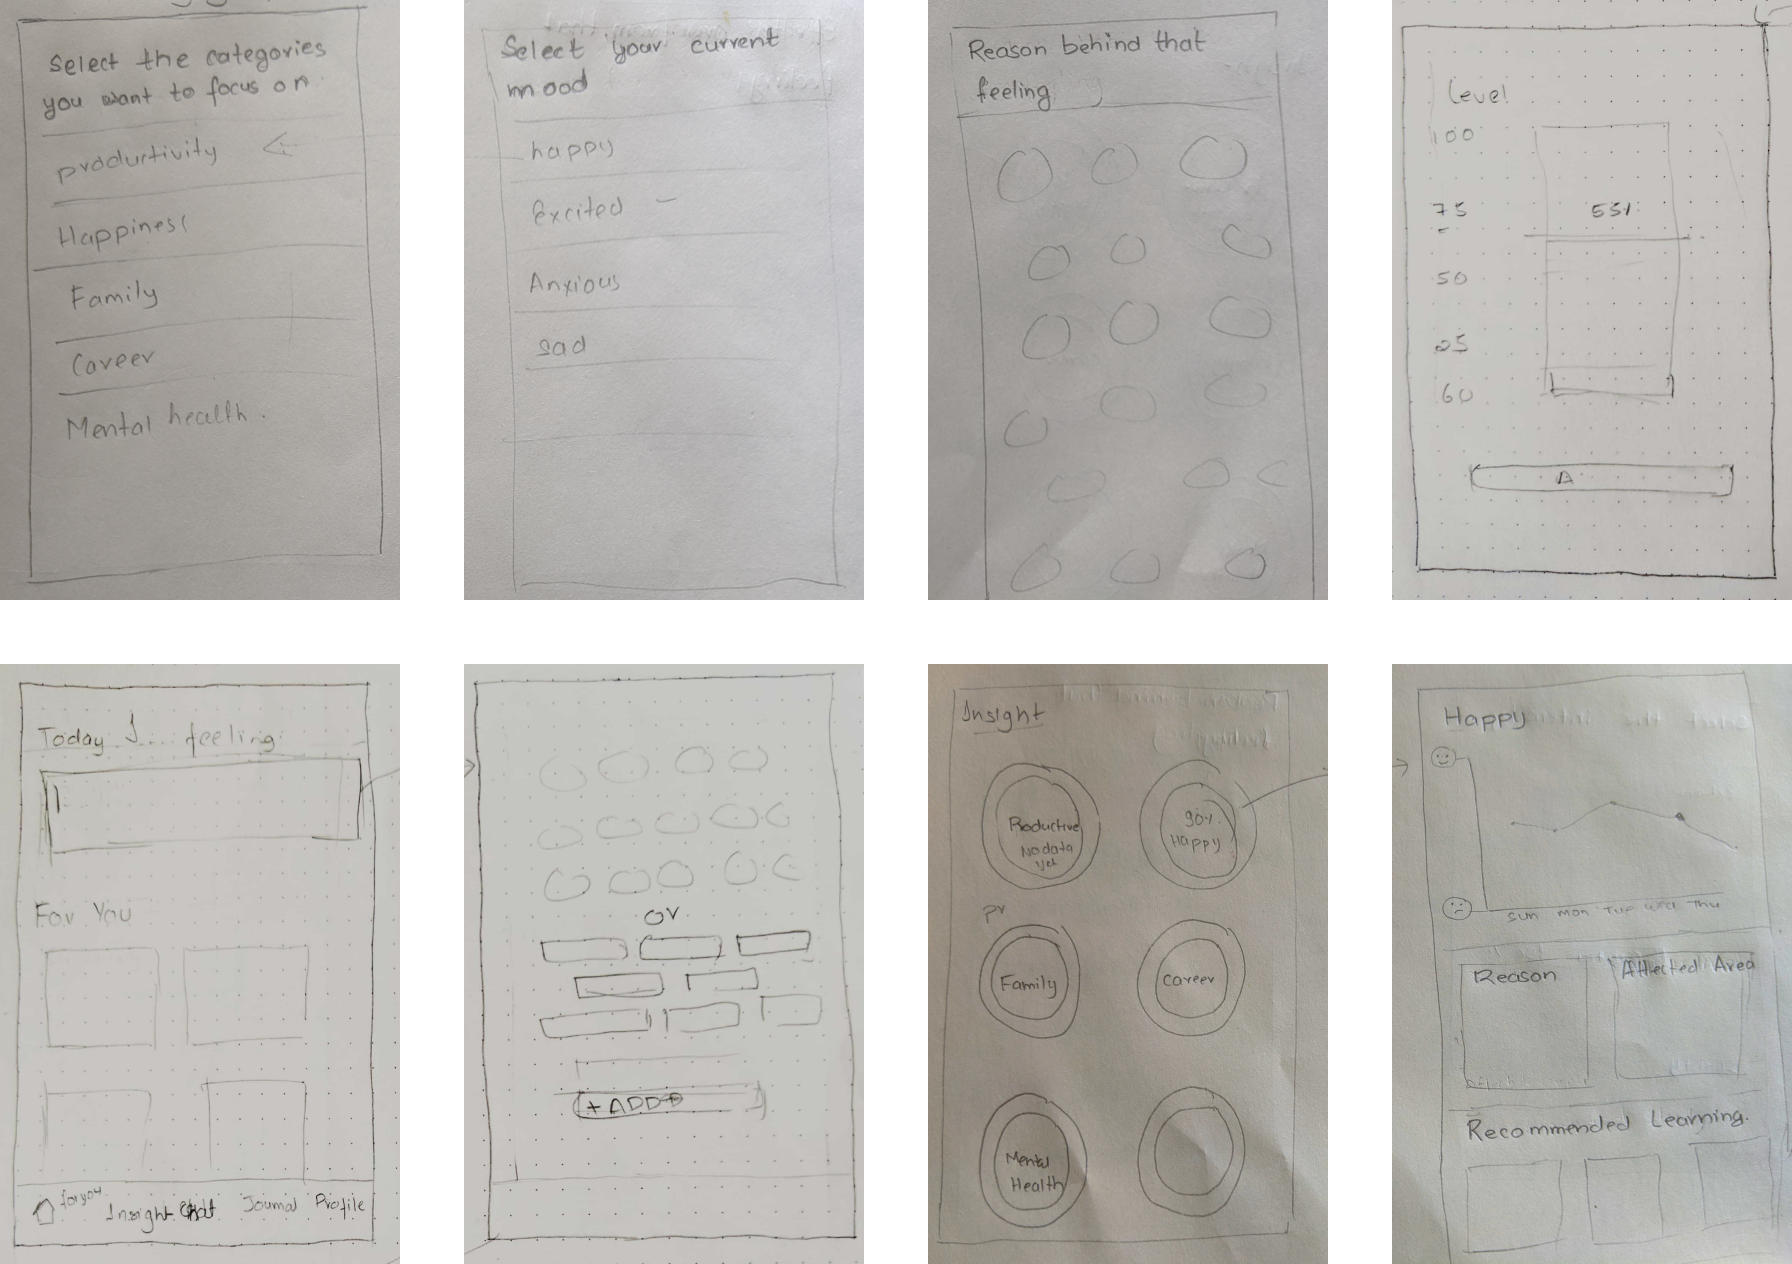 Select the categories
you want to focus on
productivity
Happiness
Family
Career
Mental health.
Select your current
mood
happy
Excited
Anxious
sad
Reason behind that
feeling
Level
100
75
55%
50
25
60
A
Today I... feeling
For You
for you Insight Chat Journal Profile
or
+ ADD
Insight
Productive
No data
yet
90%
Happy
pr
Family
Career
Mental
Health
Happy
Sun Mon Tue Wed Thu
Reason
Affected Area
Recommended Learning.